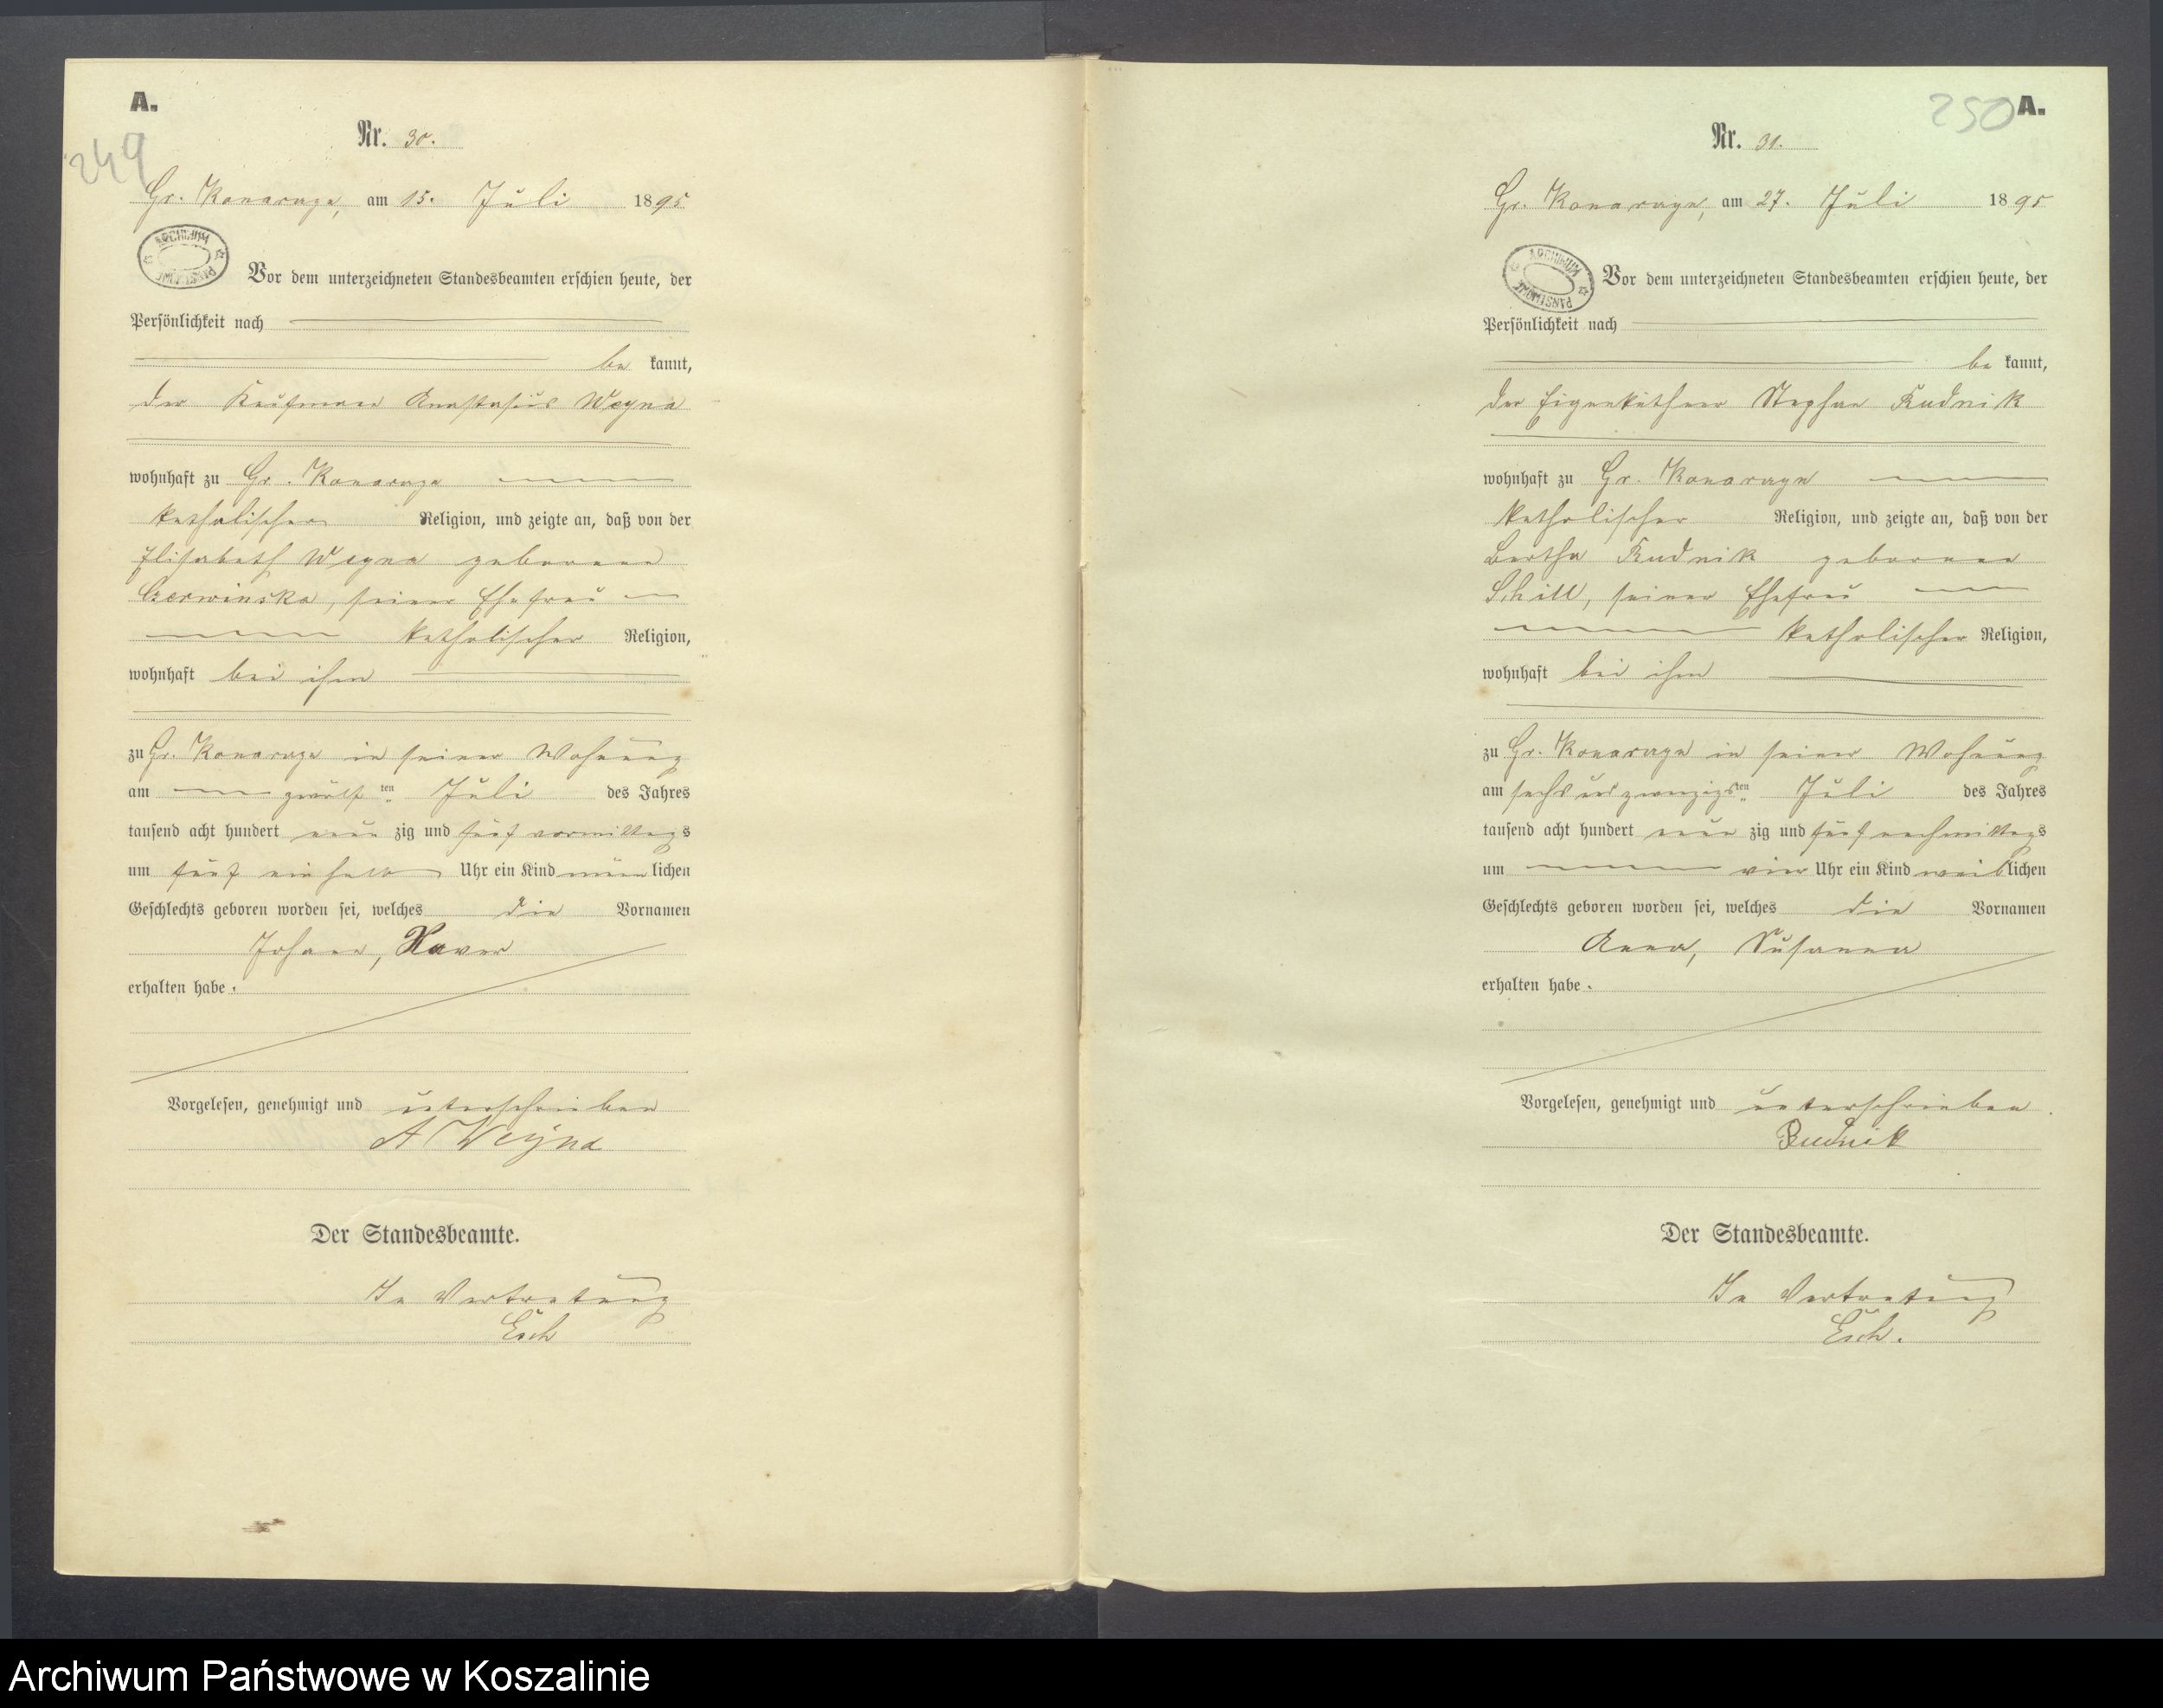 A.
249
Nr. 30.
Gr. Konarczyn, am 15. Juli 1895
ARCHIWUM PAŃSTWOWE
Vor dem unterzeichneten Standesbeamten erschien heute, der
Persönlichkeit nach
be kannt,
der Kaufmann Anastasius Weyna
wohnhaft zu Gr. Konarczyn
katholischer Religion, und zeigte an, daß von der
Elisabeth Weyna geborenen
Czerwinska, seiner Ehefrau
katholischer Religion,
wohnhaft bei ihm
zu Gr. Konarczyn in seiner Wohnung
am zwölf ten Juli des Jahres
tausend acht hundert neun zig und fünf vormittags
um fünf ein halb Uhr ein Kind männ lichen
Geschlechts geboren worden sei, welches die Vornamen
Johann, Xaver
erhalten habe.
Vorgelesen, genehmigt und unterschrieben
A Weÿna
Der Standesbeamte.
In Vertretung
Esch
250 A.
Nr. 31.
Gr. Konarczyn, am 27. Juli 1895
ARCHIWUM PAŃSTWOWE
Vor dem unterzeichneten Standesbeamten erschien heute, der
Persönlichkeit nach
be kannt,
der Eigenkäthner Stephan Rudnik
wohnhaft zu Gr. Konarczyn
katholischer Religion, und zeigte an, daß von der
Bertha Rudnik geborenen
Schill, seiner Ehefrau
katholischer Religion,
wohnhaft bei ihm
zu Gr. Konarczyn in seiner Wohnung
am sechs und zwanzigsten Juli des Jahres
tausend acht hundert neun zig und fünf nachmittags
um vier Uhr ein Kind weiblichen
Geschlechts geboren worden sei, welches die Vornamen
Anna, Susanna
erhalten habe.
Vorgelesen, genehmigt und unterschrieben
Rudnik
Der Standesbeamte.
In Vertretung
Esch.
Archiwum Państwowe w Koszalinie